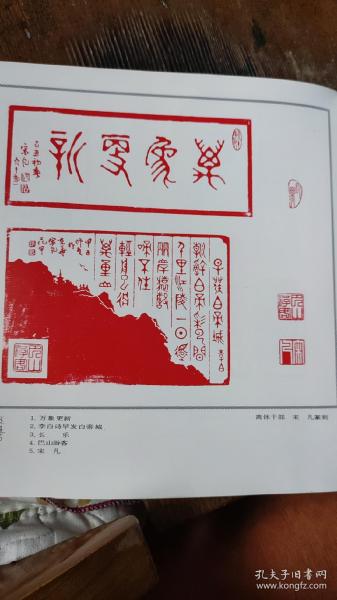 萬象更新
早發白帝城 李白
朝辭白帝彩雲間
千里江陵一日還
兩岸猿聲
啼不住
輕舟已過
萬重山
1. 万象更新
2. 李白诗早发白帝城
3. 长 乐
4. 巴山游客
5. 宋 凡
离休干部 宋 凡篆刻
孔夫子旧书网
kongfz.com